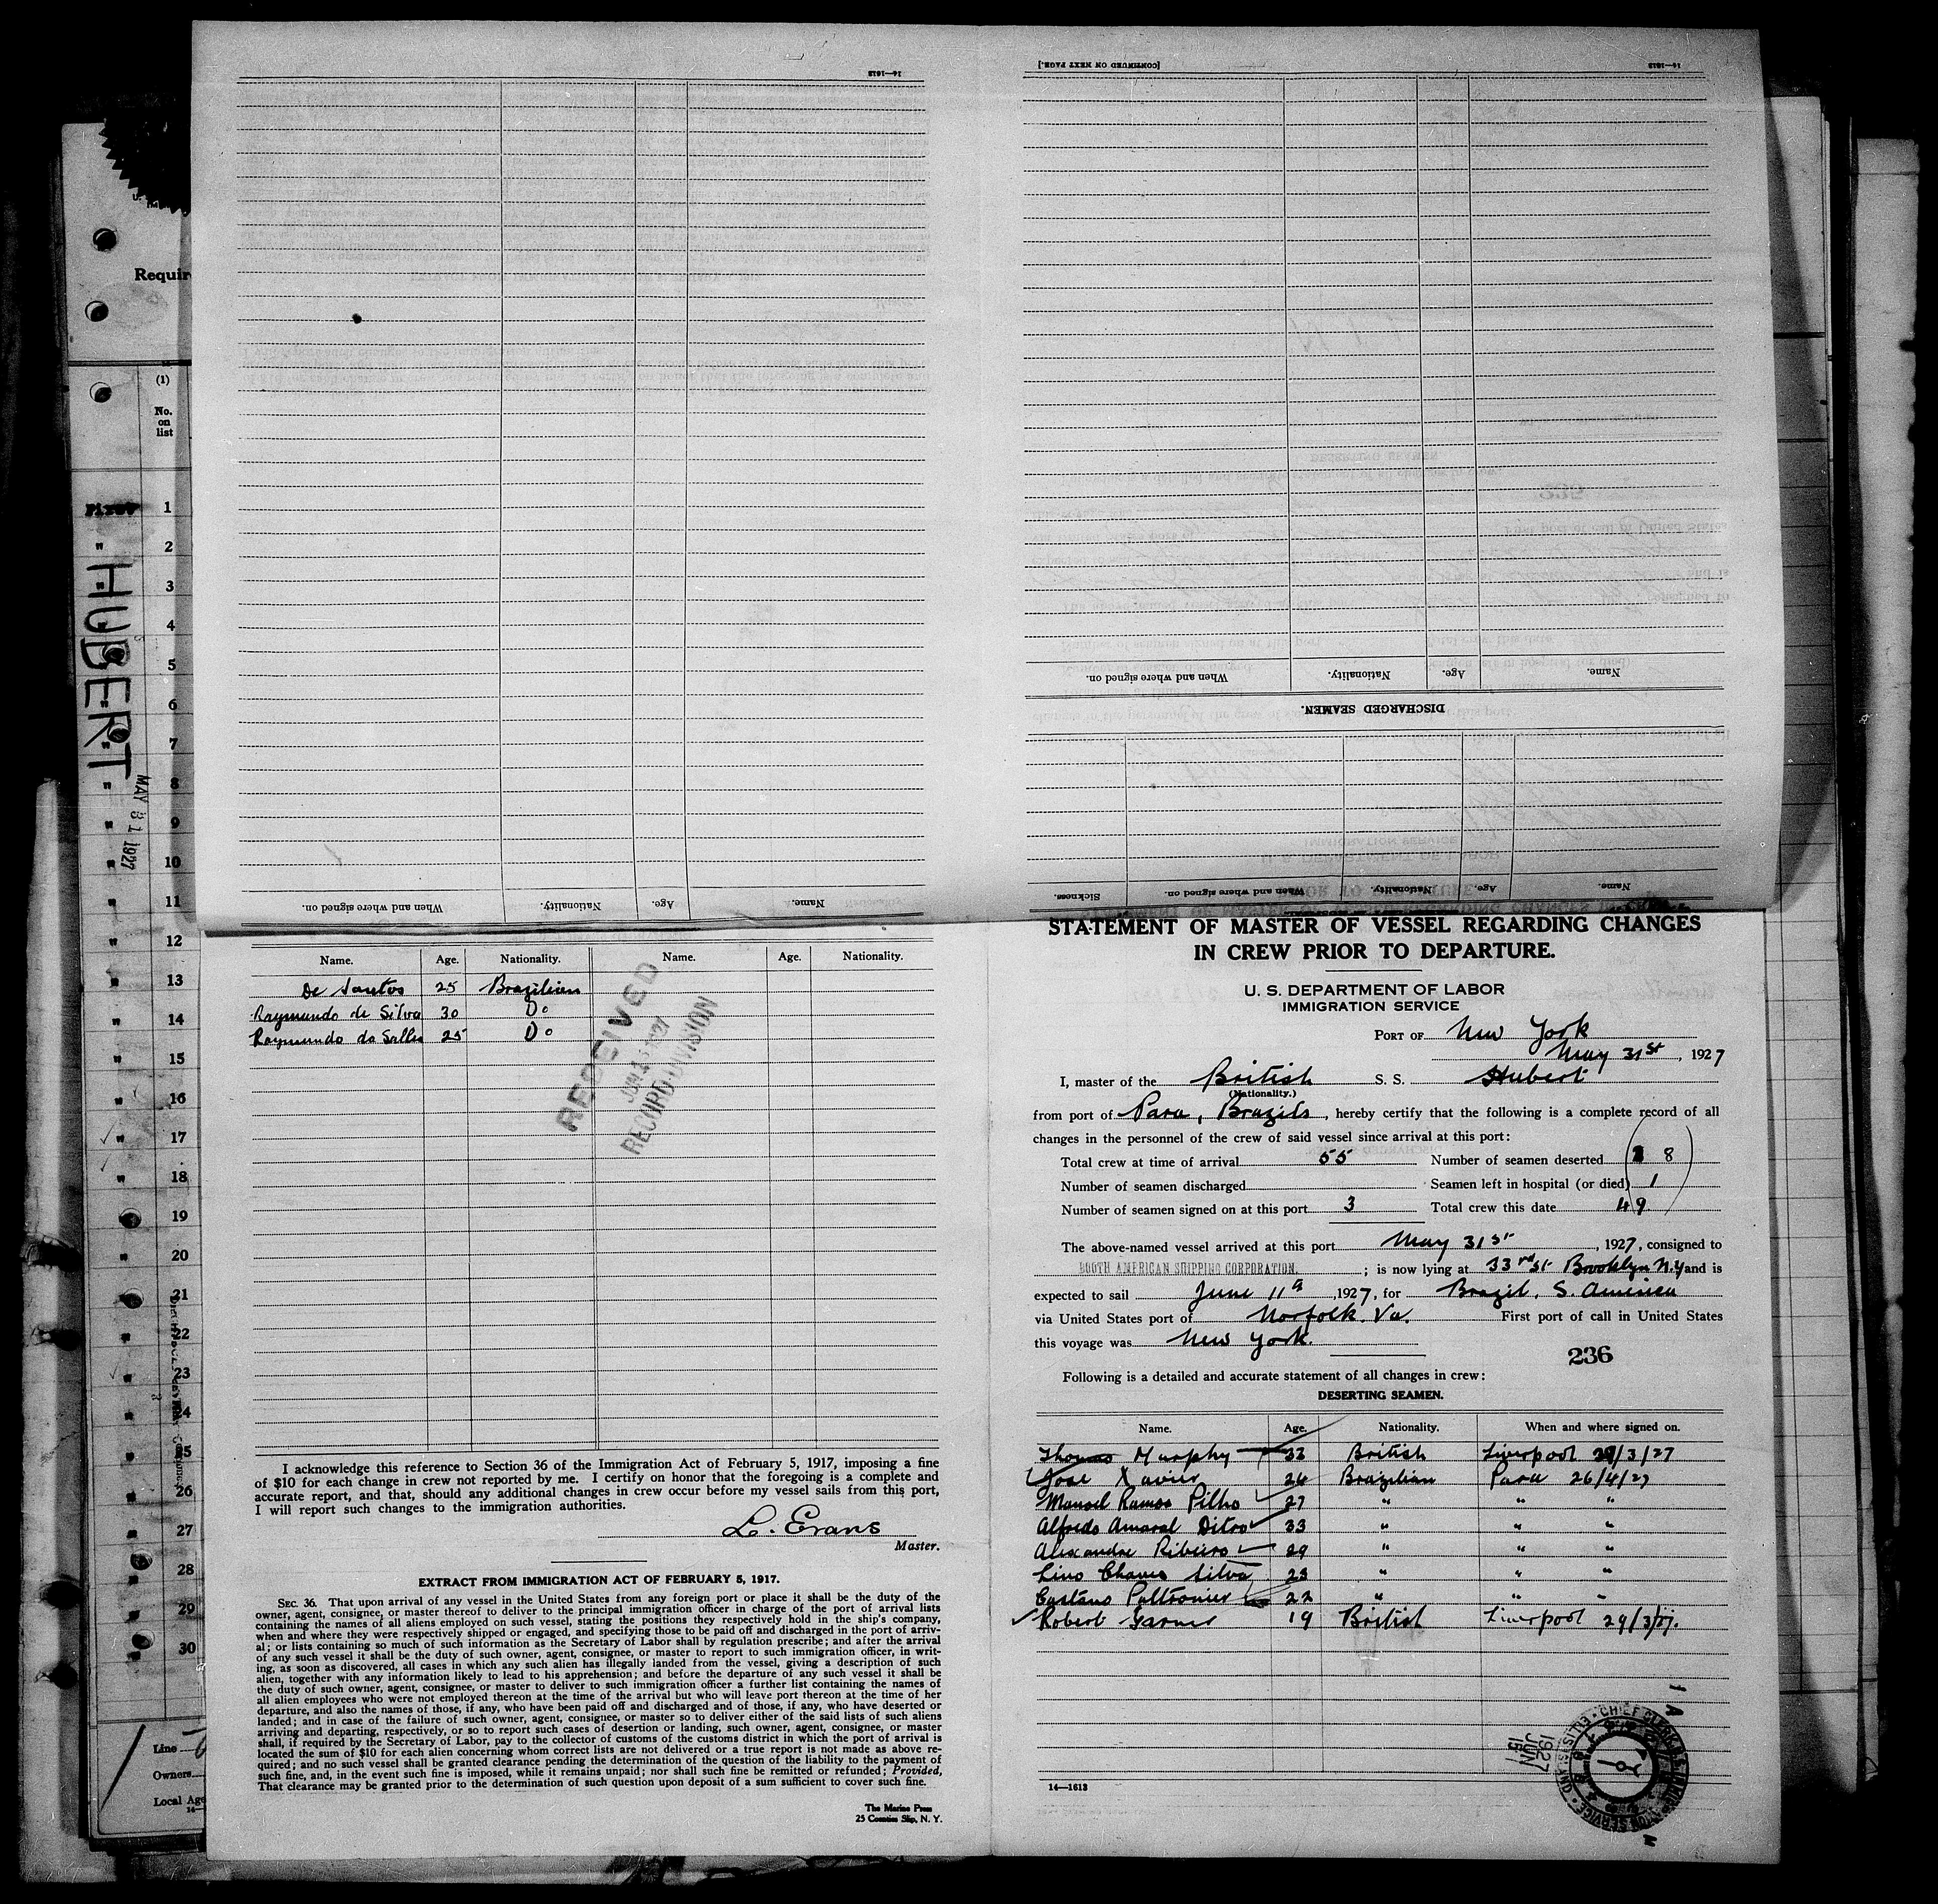 14—1613
[CONTINUED ON NEXT PAGE.]
14—1613
When and where signed on.
Nationality.
Age.
Name.
DISCHARGED SEAMEN.
Sickness.
When and where signed on.
Nationality.
Age.
Name.
When and where signed on.
Nationality.
Age.
Name.
Requir
(1)
No.
on
list
1
2
3
4
5
6
7
8
9
10
11
12
13
14
15
16
17
18
19
20
21
22
23
24
25
26
27
28
29
30
HUBERT
MAY 31 1927
Line
Owners
Local Age
14—
Name. Age. Nationality. Name. Age. Nationality.
De Santos 25 Brazilian
Raymundo de Silva 30 Do
Raymundo do Salles 25 Do
RECEIVED
RECORD DIVISION
I acknowledge this reference to Section 36 of the Immigration Act of February 5, 1917, imposing a fine
of $10 for each change in crew not reported by me. I certify on honor that the foregoing is a complete and
accurate report, and that, should any additional changes in crew occur before my vessel sails from this port,
I will report such changes to the immigration authorities.
L. Evans
Master.
EXTRACT FROM IMMIGRATION ACT OF FEBRUARY 5, 1917.
SEC. 36. That upon arrival of any vessel in the United States from any foreign port or place it shall be the duty of the
owner, agent, consignee, or master thereof to deliver to the principal immigration officer in charge of the port of arrival lists
containing the names of all aliens employed on such vessel, stating the positions they respectively hold in the ship's company,
when and where they were respectively shipped or engaged, and specifying those to be paid off and discharged in the port of arriv-
al; or lists containing so much of such information as the Secretary of Labor shall by regulation prescribe; and after the arrival
of any such vessel it shall be the duty of such owner, agent, consignee, or master to report to such immigration officer, in writ-
ing, as soon as discovered, all cases in which any such alien has illegally landed from the vessel, giving a description of such
alien, together with any information likely to lead to his apprehension; and before the departure of any such vessel it shall be
the duty of such owner, agent, consignee, or master to deliver to such immigration officer a further list containing the names of
all alien employees who were not employed thereon at the time of the arrival but who will leave port thereon at the time of her
departure, and also the names of those, if any, who have been paid off and discharged and of those, if any, who have deserted or
landed; and in case of the failure of such owner, agent, consignee, or master so to deliver either of the said lists of such aliens
arriving and departing, respectively, or so to report such cases of desertion or landing, such owner, agent, consignee, or master
shall, if required by the Secretary of Labor, pay to the collector of customs of the customs district in which the port of arrival is
located the sum of $10 for each alien concerning whom correct lists are not delivered or a true report is not made as above re-
quired; and no such vessel shall be granted clearance pending the determination of the question of the liability to the payment of
such fine, and, in the event such fine is imposed, while it remains unpaid; nor shall such fine be remitted or refunded; Provided,
That clearance may be granted prior to the determination of such question upon deposit of a sum sufficient to cover such fine.
The Marine Press
25 Coenties Slip, N. Y.
STATEMENT OF MASTER OF VESSEL REGARDING CHANGES
IN CREW PRIOR TO DEPARTURE.
U. S. DEPARTMENT OF LABOR
IMMIGRATION SERVICE
PORT OF New York
May 31st, 1927
I, master of the British S. S. Hubert
(Nationality.)
from port of Para, Brazils, hereby certify that the following is a complete record of all
changes in the personnel of the crew of said vessel since arrival at this port:
Total crew at time of arrival 55 Number of seamen deserted 8
Number of seamen discharged Seamen left in hospital (or died) 1
Number of seamen signed on at this port 3 Total crew this date 49
The above-named vessel arrived at this port May 31st, 1927, consigned to
BOOTH AMERICAN SHIPPING CORPORATION. ; is now lying at 33rd St Brooklyn N.Y and is
expected to sail June 11th, 1927, for Brazil, S. America
via United States port of Norfolk. Va. First port of call in United States
this voyage was New York.
236
Following is a detailed and accurate statement of all changes in crew:
DESERTING SEAMEN.
Name. Age. Nationality. When and where signed on.
Thomas Murphy 32 British Liverpool 29/3/27
Jose Xavier 26 Brazilian Para 26/4/27
Manoel Ramos Pilho 27 " " "
Alfredo Amaral Ditro 33 " " "
Alexandre Ribeiro 29 " " "
Lino Chaves Silva 23 " " "
Gaetano Paltronier 22 " " "
Robert Garner 19 British Liverpool 29/3/27.
14—1613
1927
JUN
15
CHIEF CLERK
ELLIS ISLAND